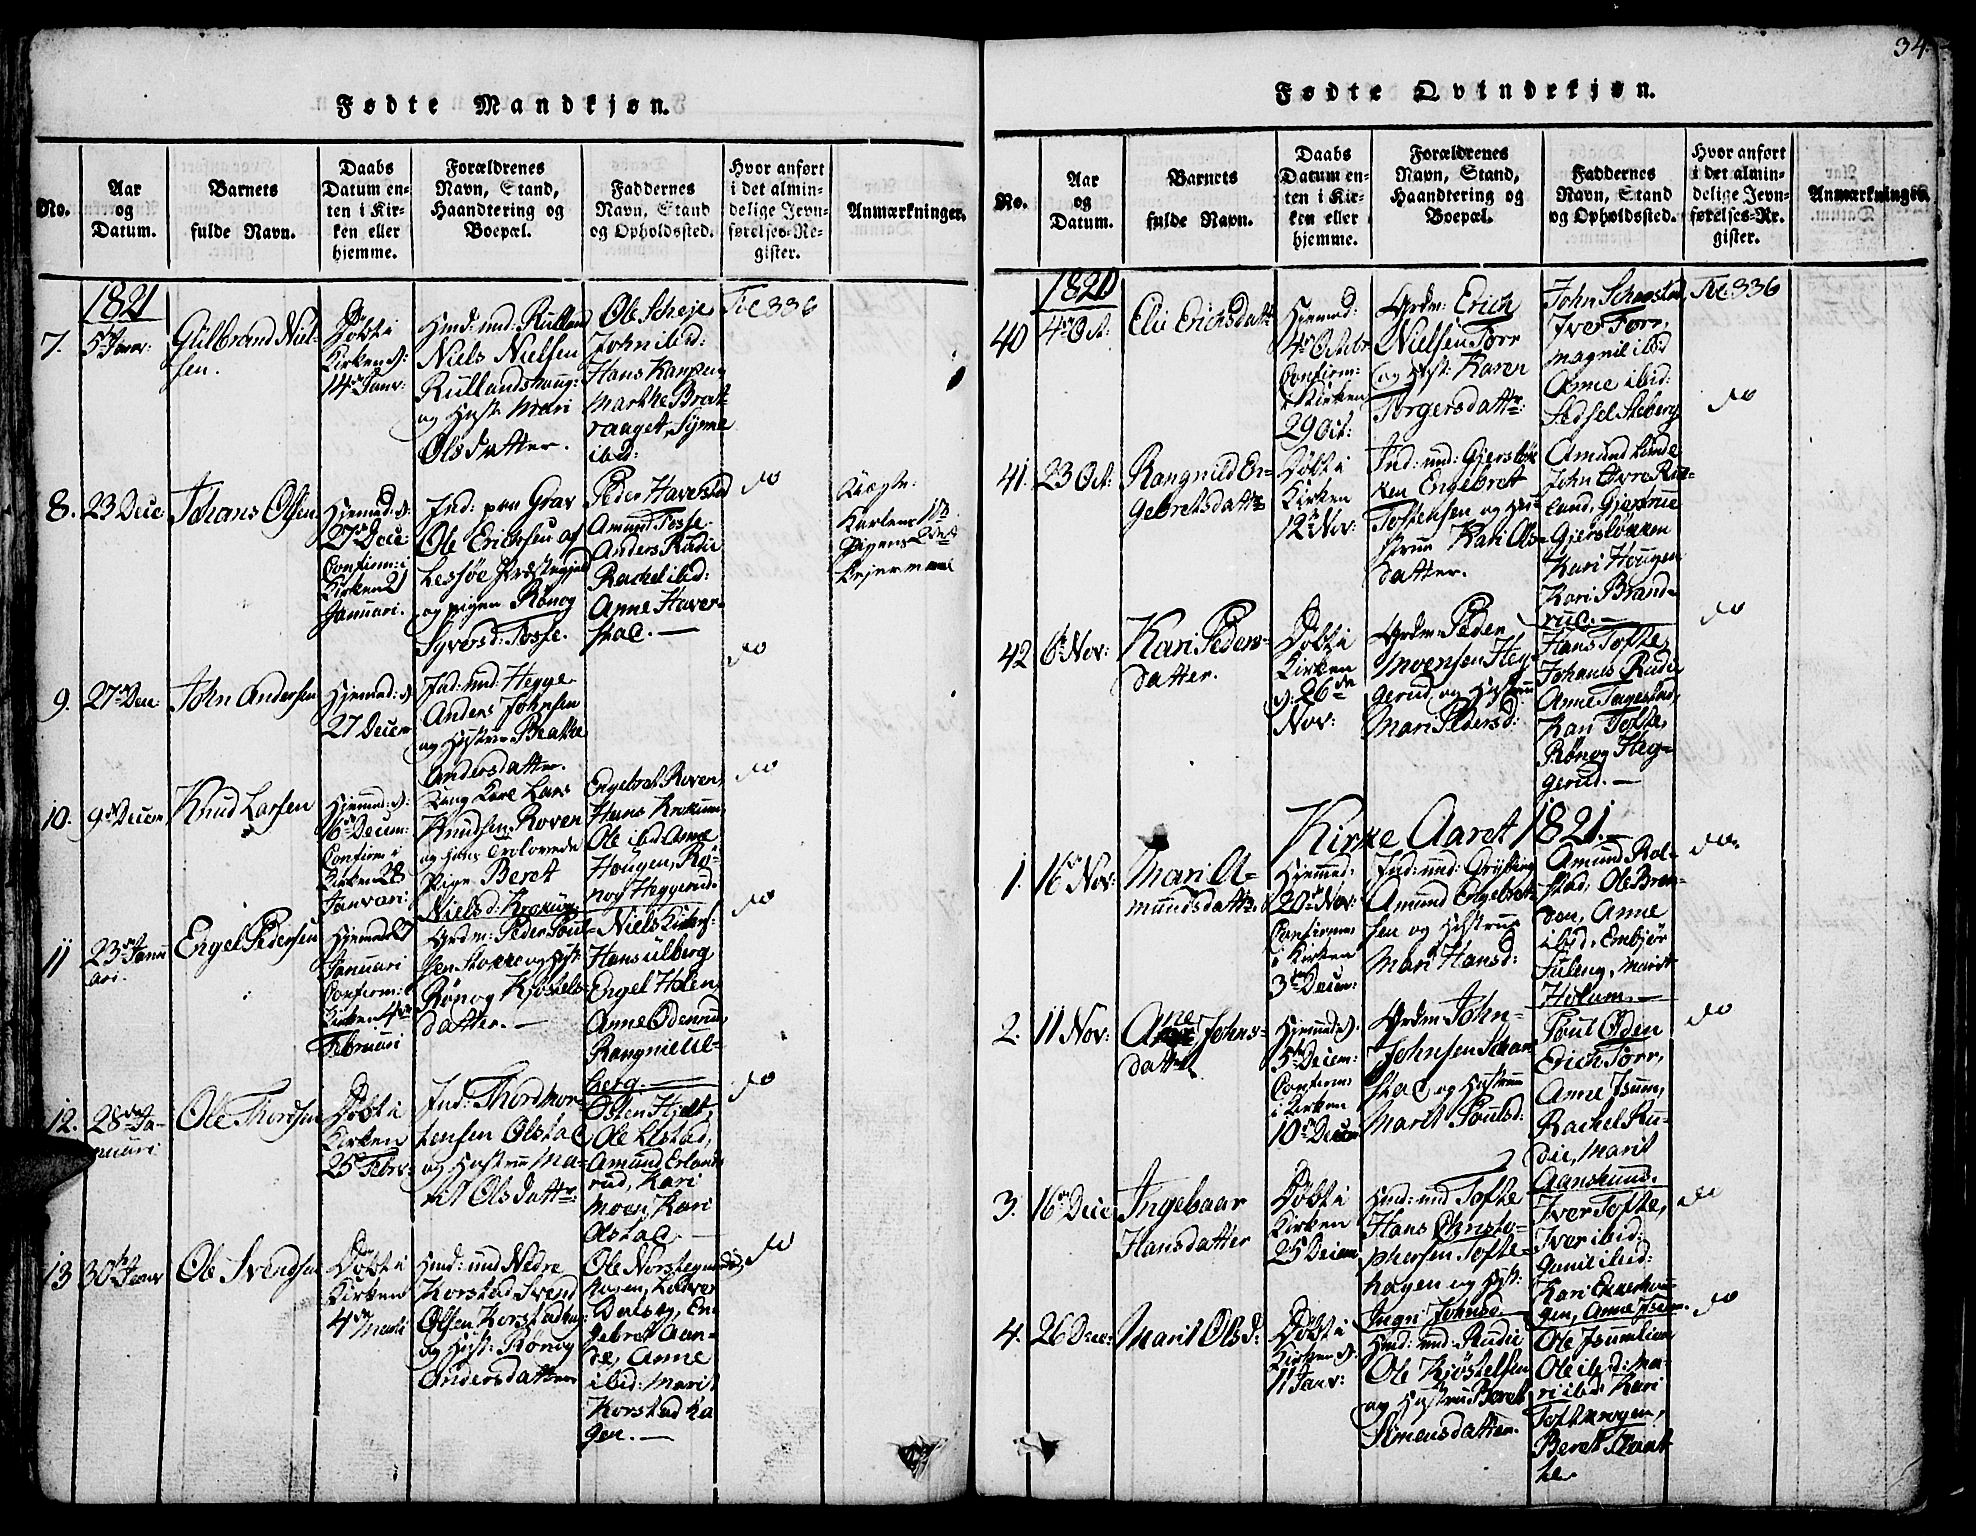 34.
Fødte Mandkjøn.
No.
Aar
og
Datum.
Barnets
fulde Navn.
Daabs
Datum en-
ten i Kir-
ken eller
hjemme.
Forældrenes
Navn, Stand,
Haandtering og
Boepæl.
Faddernes
Navn, Stand
og Opholdssted.
Hvor anført
i det almin-
delige Jevn-
førelses-Re-
gister.
Anmærkninger.
1821
7.
5te Janv:
Gulbrand Niel-
sen.
Døbt i
Kirken d:
14de Janv:
Niels Nielsen
Rullandshaug:
og Hust: Mari
Olsdatter.
Ole Scheje
John ibid:
Hans Kampen
Marthe Brat-
raaget, Synne
ibid:
336
8.
23 Dece
Johans Olsen
Hjemmed:
27de Dece
Confirm: i
Kirken 21
Januari.
Ole Erichsen af
Lessøe Præstegield
og pigen Rønog
Syversd: Tofte.
Peder Haverstad
Amund Tofte
Anders Rudie
Rachel ibid:
Anne Haver-
stad.
do
9.
27de Dece
John Andersen
27 Decem
Ind: und: Hegge
Anders Johnsen
og Hustrue Beathe
Andersdatter.
do
10.
9de Decem
Knud Larsen
16de Decem:
Confirm i
Kirken 28
Janvari
Ung Karl Lars
Knudsen Roven
og hans Trolovede
Pige Beret
Nielsd: Krokug
Engebret Roven,
Hans Krokum
Ole ibid: Anne
Hougen, Rø-
nog Heggerud.
do
11
23de Janu
ari.
Engel Pedersen
Januari
Confirm: i
Kirken 4de
Februari
Grdm: Peder Poul-
sen Stokke og Hust
Rønog Kjøstels-
datter.
Hans Ulberg
Engel Holen,
Anne Odenrud,
Rangnie Ul-
berg.
do
12.
28de Ja-
nuari
Ole Thordsen
Døbt i
Kirken
25 Febr:
Ind: Thord Mor-
tensen Olstad
og Hustrue Ma-
rit Olsdattr:
Osten Hjelt,
Ole Listad,
Amund Erlands
rud, Kari
Moen, Kari
Olstad
do
13
30te Janv
Ole Svendsen
Døbt i
Kirken
4de Marti
Hmd: und Nedre
Korstad Svend
Olsen Korstadhag:
og Hust: Rønog
Andersdatter
Dalseg, En
gebret Aan-
de, Anne
ibid: Marit
Korstad ha
gen.
do
Fødte Qvindekjøn.
No.
Aar
og
Datum.
Barnets
fulde Navn.
Daabs
Datum en-
ten i Kir-
ken eller
hjemme.
Forældrenes
Navn, Stand,
Haandtering og
Boepæl.
Faddernes
Navn, Stand
og Opholdssted.
Hvor anført
i det almin-
delige Jevn-
førelses-Re-
gister.
Anmærkninger.
40
4de Oct:
Elie Erichsdattr
Hjemmed:
4de Octobr
Confirm:
i Kirken
29 Oct:
Grdm: Erich
Nielsen Torr
og Hust: Karen
Torgersdattr:
Iver Torr,
Magnil ibid
Anne ibid:
Sidsel Steberg
336
41.
23 Oct:
Rangnild En-
gebretsdattr
Døbt i
Kirken
12te Nov:
Ind: und: Gjersløk-
ken Engebret
Tostensen og Hu-
strue Kari Ols-
datter.
Amund Linde
John Øvre Rul-
land, Gjertrue
Gjersløkken
Kari Hougen
Kari Brand-
rud.
do
42
6te Nov:
Kari Peders-
datter.
Døbt i
Kirken
d: 26de
Nov:
Grdm: Peder
Iversen Heg-
gerud og Hustrue
Mari Pedersd:
Hans Tofte,
Johans Rudi
Anne Tagestad,
Kari Tofte,
Rønog Heg-
gerud.
do
Kirke Aaret 1821.
1.
16de Nov:
Mari A-
mundsdattr.
Hjemmed:
20de Nov:
Confirm:
i Kirken
3de Decem:
Amund Engebret-
sen og Hustrue
Mari Hansd:
Amund Rol-
stad, Ole Bræn-
den, Anne
ibid, Embjør
Marit
Holum.
do
2.
11 Nov:
Ane Johns-
datter
Hjemmed:
5te Decem:
Confirm:
i Kirken
10de Decem
Grdm John
Johnsen
og Hustrue
Marit Poulsd:
Poul Olden
Erich Torr,
Anne Isum,
Rachel Ru-
die, Marit
do
3.
16de Dece
Ingebaar
Hansdatter
Døbt i
Kirken
25 Decem
Hmd: und Tofte
Hans Christo-
phersen Tofte-
hagen og Hust:
Ingri Johnsd.
Iver Tofte,
Iver ibid:
ibid:
gen, Anne Isum.
do
4.
26 Dece:
Marit Olsd:
Døbt i
Kirken d:
11 Janv:
Hmd: und: Rudie
Ole Kjøstelsen
og Hustrue Beret
Simensdatter.
Ole Isumlien
Ole ibid: Ma-
ri ibid: Kari
Toftkrogen,
do